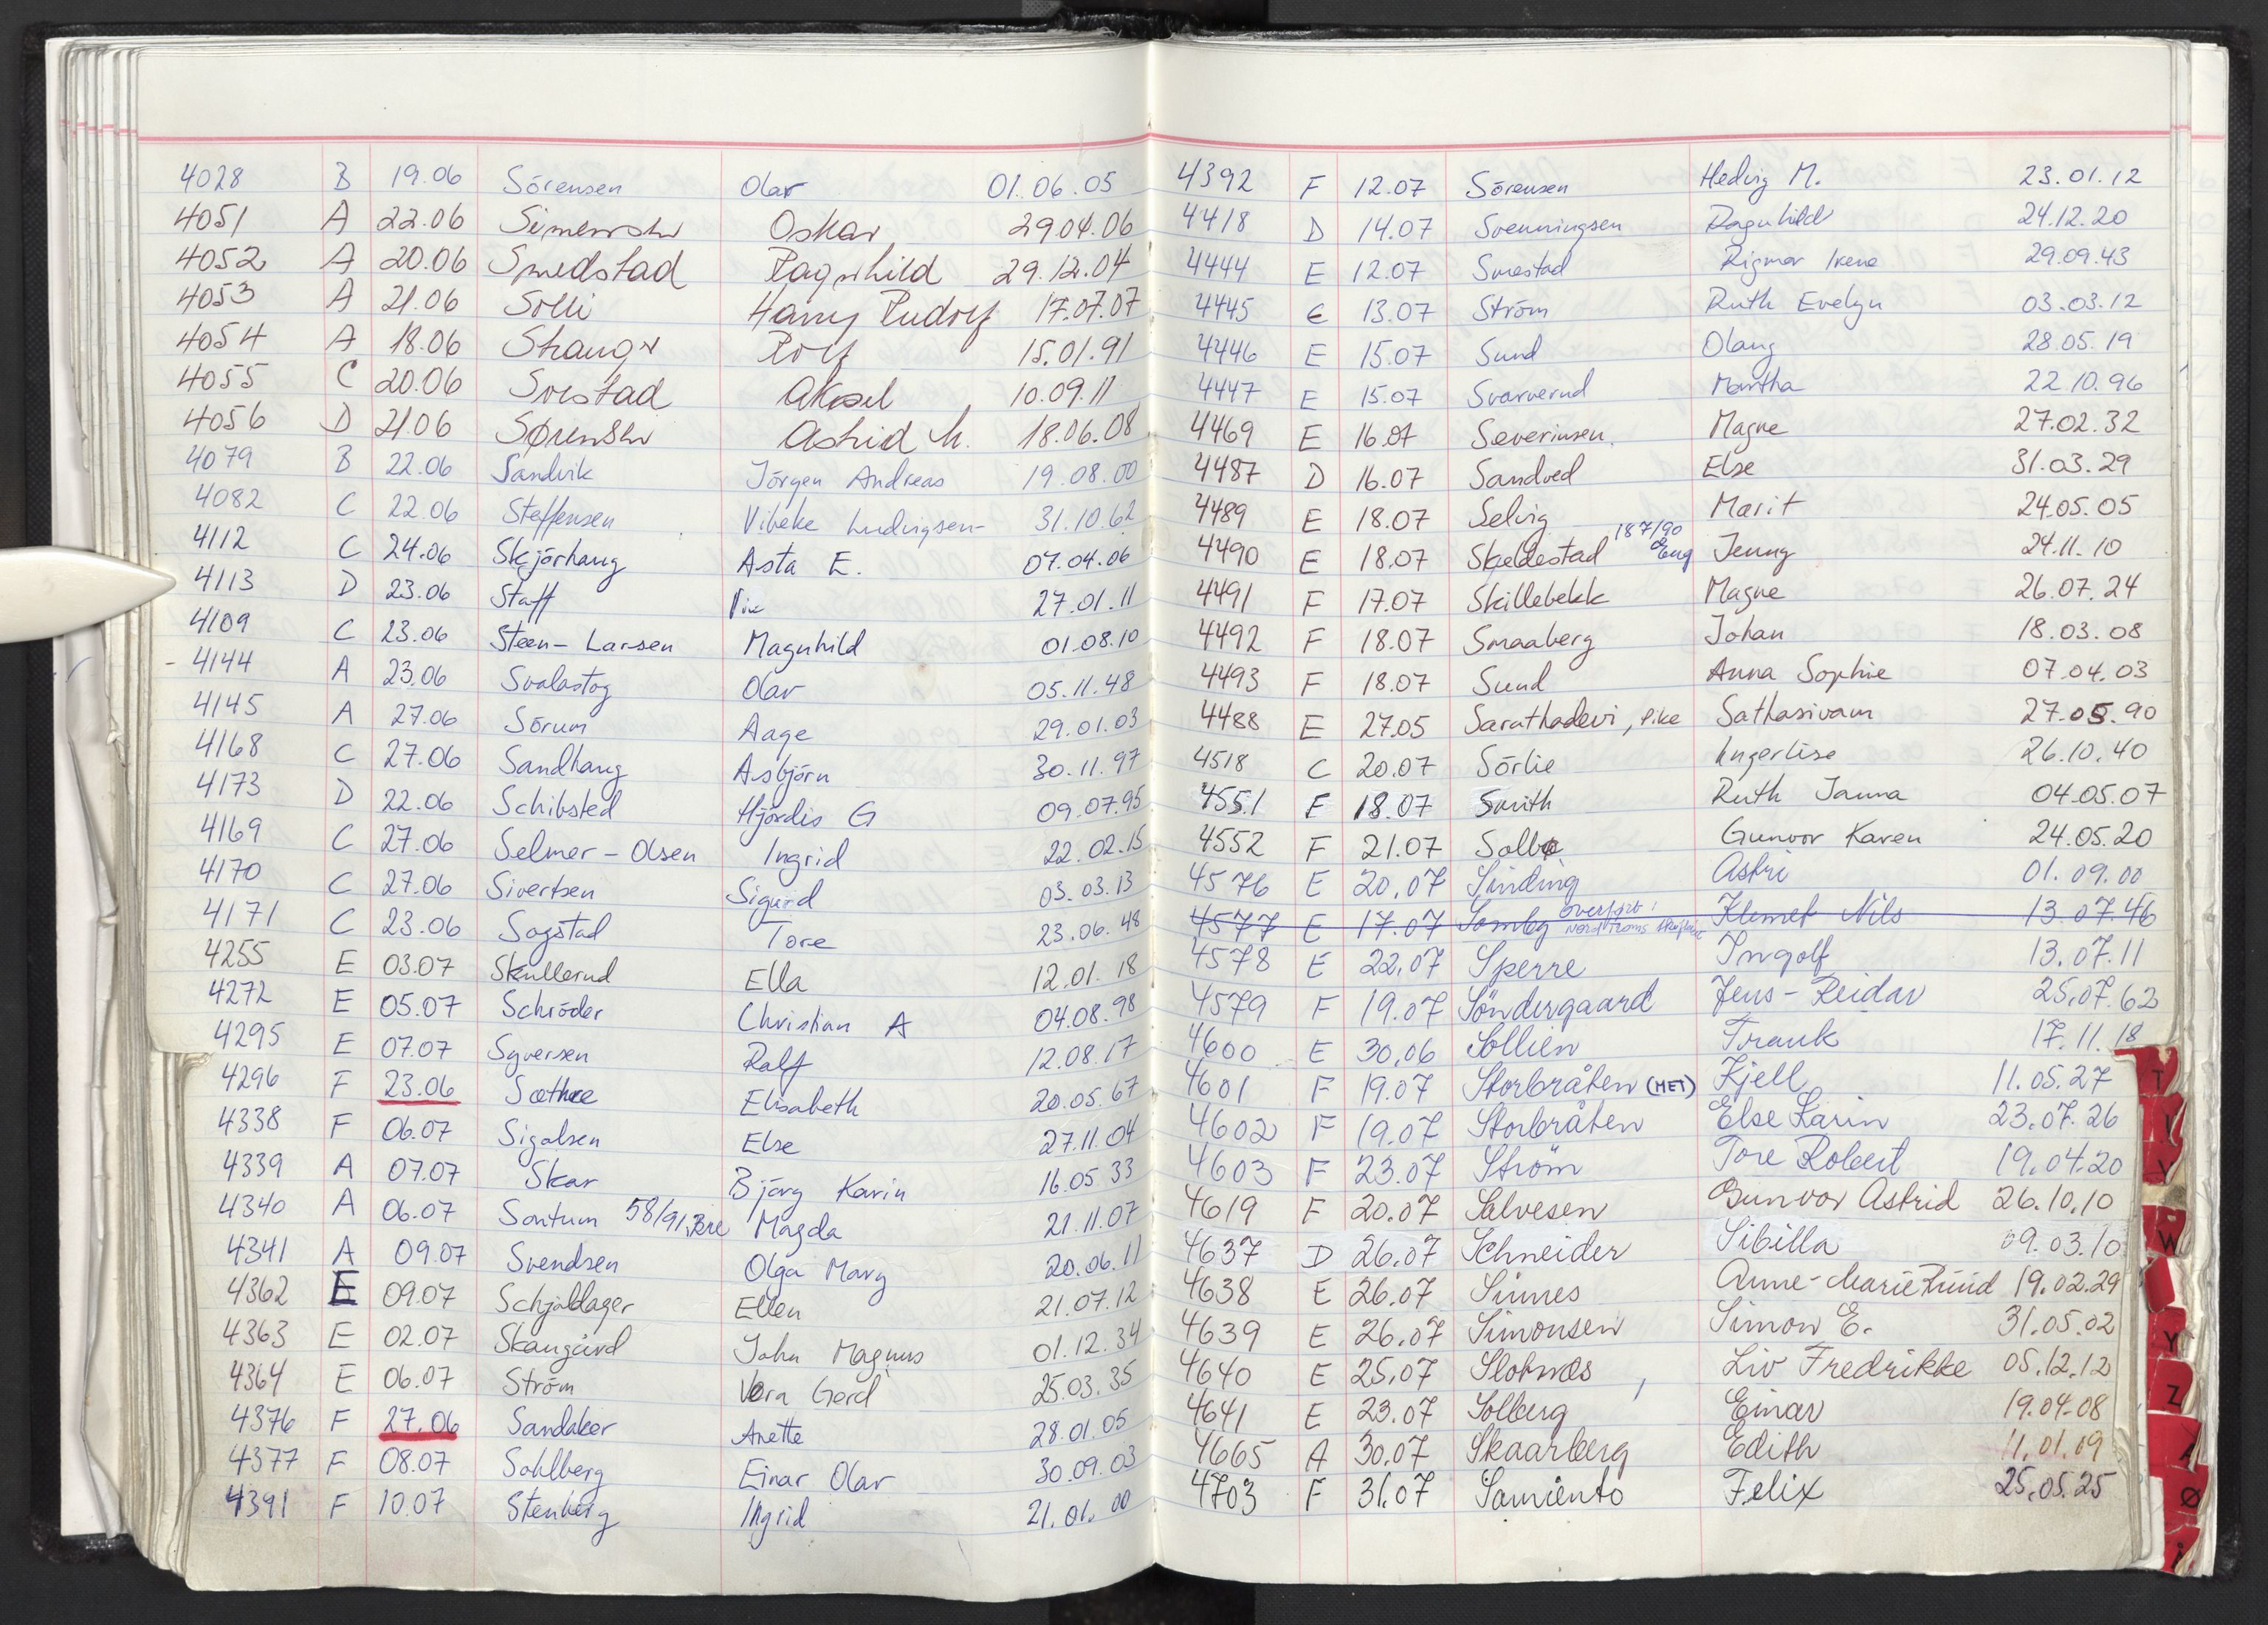 4028 B 19.06 Sörensen Olav 01.06.05
4051 A 22.06 Simensen Oskar 29.04.06
4052 A 20.06 Smedstad Ragnhild 29.12.04
4053 A 21.06 Solli Harry Rudolf 17.07.07
4054 A 18.06 Stranger Rolf 15.01.91
4055 C 20.06 Sæstad Aksel 10.09.11
4056 D 21.06 Sørensen Astrid M. 18.06.08
4079 B 22.06 Sandvik Jörgen Andreas 19.08.00
4082 C 22.06 Steffensen Vibeke Ludvigsen- 31.10.62
4112 C 24.06 Skjörhaug Asta E. 07.04.06
4113 D 23.06 Staff 27.01.11
4109 C 23.06 Steen-Larsen Magnhild 01.08.10
- 4144 A 23.06 Svalastog Olav 05.11.48
4145 A 27.06 Sörum Aage 29.01.03
4168 C 27.06 Sandhaug Asbjörn 30.11.97
4173 D 22.06 Schibsted Hjördis G 09.07.95
4169 C 27.06 Selmer-Olsen Ingrid 22.02.15
4170 C 27.06 Sivertsen Sigurd 03.03.13
4171 C 23.06 Sagstad Tore 23.06.48
4255 E 03.07 Skullerud Ella 12.01.18
4272 E 05.07 Schröder Christian A 04.08.98
4295 E 07.07 Syversen Ralf 12.08.17
4296 F 23.06 Sæthre Elisabeth 20.05.67
4338 F 06.07 Sigalsen Else 27.11.04
4339 A 07.07 Skar Bjørg Karin 16.05.33
4340 A 06.07 Sontum 58/91 Bre Magda 21.11.07
4341 A 09.07 Svendsen Olga Mary 20.06.11
4362 E 09.07 Schjöldager Ellen 21.07.12
4363 E 02.07 Skaugård John Magnus 01.12.34
4364 E 06.07 Ström Vera Gerd 25.03.35
4376 F 27.06 Sandaker Anette 28.01.05
4377 F 08.07 Sahlberg Einar Olav 30.09.03
4391 F 10.07 Stenberg Ingrid 21.01.00
4392 F 12.07 Sörensen Hedvig M. 23.01.12
4418 D 14.07 Svenningsen Ragnhild 24.12.20
4444 E 12.07 Smestad Rigmor Irene 29.09.43
4445 E 13.07 Ström Ruth Evelyn 03.03.12
4446 E 15.07 Sund Olaug 28.05.19
4447 E 15.07 Svarverud Martha 22.10.96
4469 E 16.07 Severinsen. Magne 27.02.32
4487 D 16.07 Sandved Else 31.03.29
4489 E 18.07 Selvig Marit 24.05.05
187/90
4490 E 18.07 Skeldestad Jenny 24.11.10
4491 F 17.07 Skillebekk Magne 26.07.24
4492 F 18.07 Smaaberg Johan 18.03.08
4493 F 18.07 Sund Anna Sophie 07.04.03
4488 E 27.05 Sarathadevi, pike Sathasivam 27.05.90
4518 C 20.07 Sörlie Ingerlise 26.10.40
4551 F 18.07 Smith Ruth Janna 04.05.07
4552 F 21.07 Solbø Gunvor Karen 24.05.20
4576 E 20.07 Sinding Astri 01.09.00
4577 E 17.07 Somby overført i Nord Troms Klemet Nils 13.07.46
4578 E 22.07 Sperre Ingolf 13.07.11
4579 F 19.07 Söndergaard Jens-Reidar 25.07.62
4600 E 30.06 Sollien Frank 17.11.18
4601 F 19.07 Storbråten (MET) Kjell 11.05.27
4602 F 19.07 Storbråten Else Karin 23.07.26
4603 F 23.07 Ström Tore Robert 19.04.20
4619 F 20.07 Salvesen Gunvor Astrid 26.10.10
4637 D 26.07 Schneider Sibilla 09.03.10
4638 E 26.07 Sinnes Anne-Marie Ruud 19.02.29
4639 E 26.07 Simonsen Simon E. 31.05.02
4640 E 25.07 Slotnæs Liv Fredrikke 05.12.12
4641 E 23.07 Solberg Einar 19.04.08
4665 A 30.07 Skaarberg Edith 11.01.09
4703 F 31.07 Samiento Felix 25.05.25
T
V
W
Y
Z
Ø